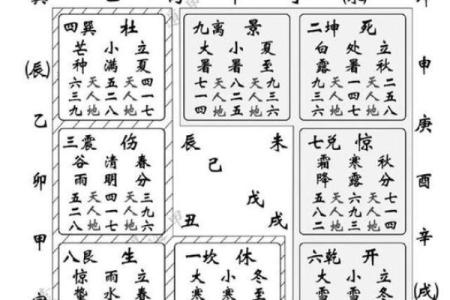 四巽 杜
芒 小 立
种 满 夏
六 天 五 天 四
三 人 二 人 一
九 地 八 地 七
九离 景
大 小 夏
暑 暑 至
七 天 八 天 九
一 人 二 人 三
四 地 五 地 六
二坤 死
白 处 立
露 暑 秋
九 天 一 天 二
三 人 四 人 五
六 地 七 地 八
(辰)
乙
卯
甲
申
庚
酉
辛
三震 伤
谷 清 春
雨 明 分
五 天 四 天 三
二 人 一 人 九
八 地 七 地 六
辰 未
己
戊
丑 戌
七兑 惊
霜 寒 秋
降 露 分
五 天 六 天 七
八 人 九 人 一
二 地 三 地 四
八艮 生
惊 雨 立
蛰 水 春
一坎 休
大 小 冬
寒 寒 至
六乾 开
大 小 立
雪 雪 冬